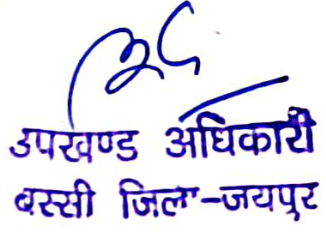 उपखण्ड अधिकारी
बस्सी जिला-जयपुर